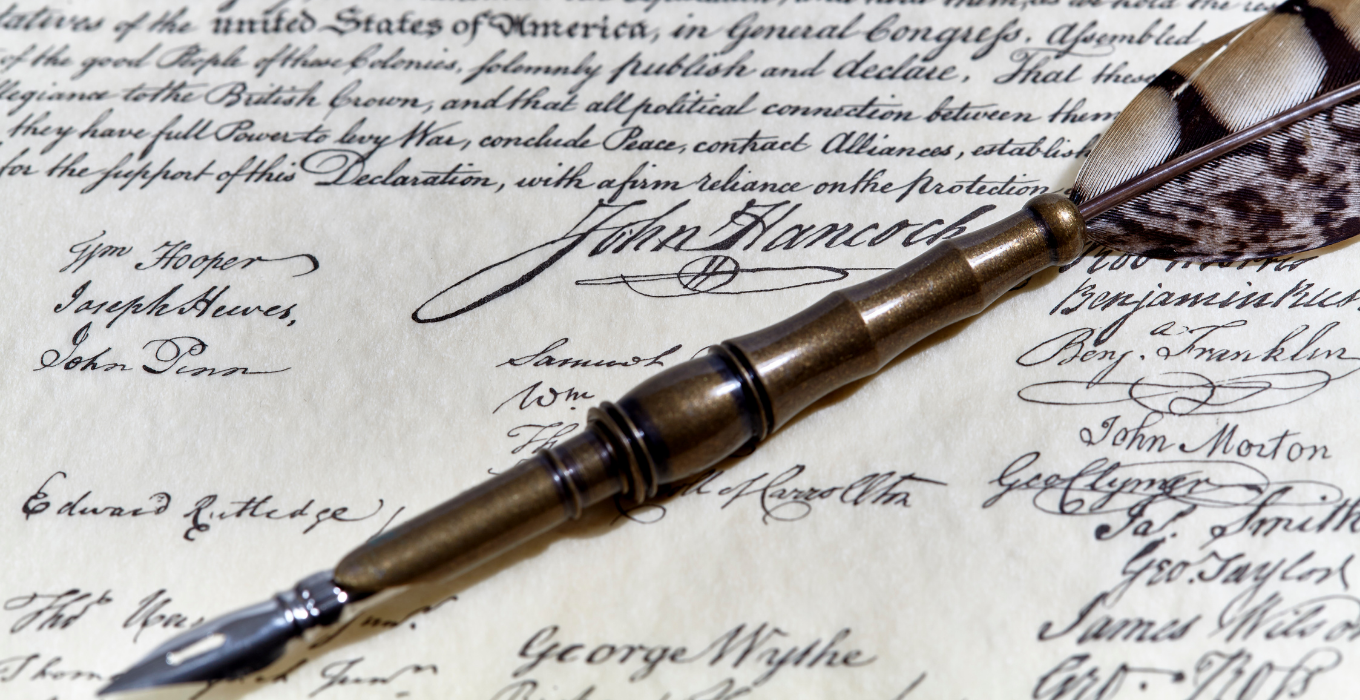 latives of the united States of America, in General Congress, Assembled
of the good People of these Colonies, solemnly publish and declare, That these
llegiance to the British Crown, and that all political connection between them
they have full Power to levy War, conclude Peace, contract Alliances, establish
for the support of this Declaration, with a firm reliance on the protection
John Hancock
Wm Hooper
Joseph Hewes,
John Penn
Edward Rutledge
Thos
Junr.
Junr
Samuel
Wm.
Th
of Carrollton
George Wythe
Rob Morris
Benjamin Rus
Benj. Franklin
John Morton
Geo Clymer
Jas. Smith
Geo. Taylor
James Wilson
Geo. Ross